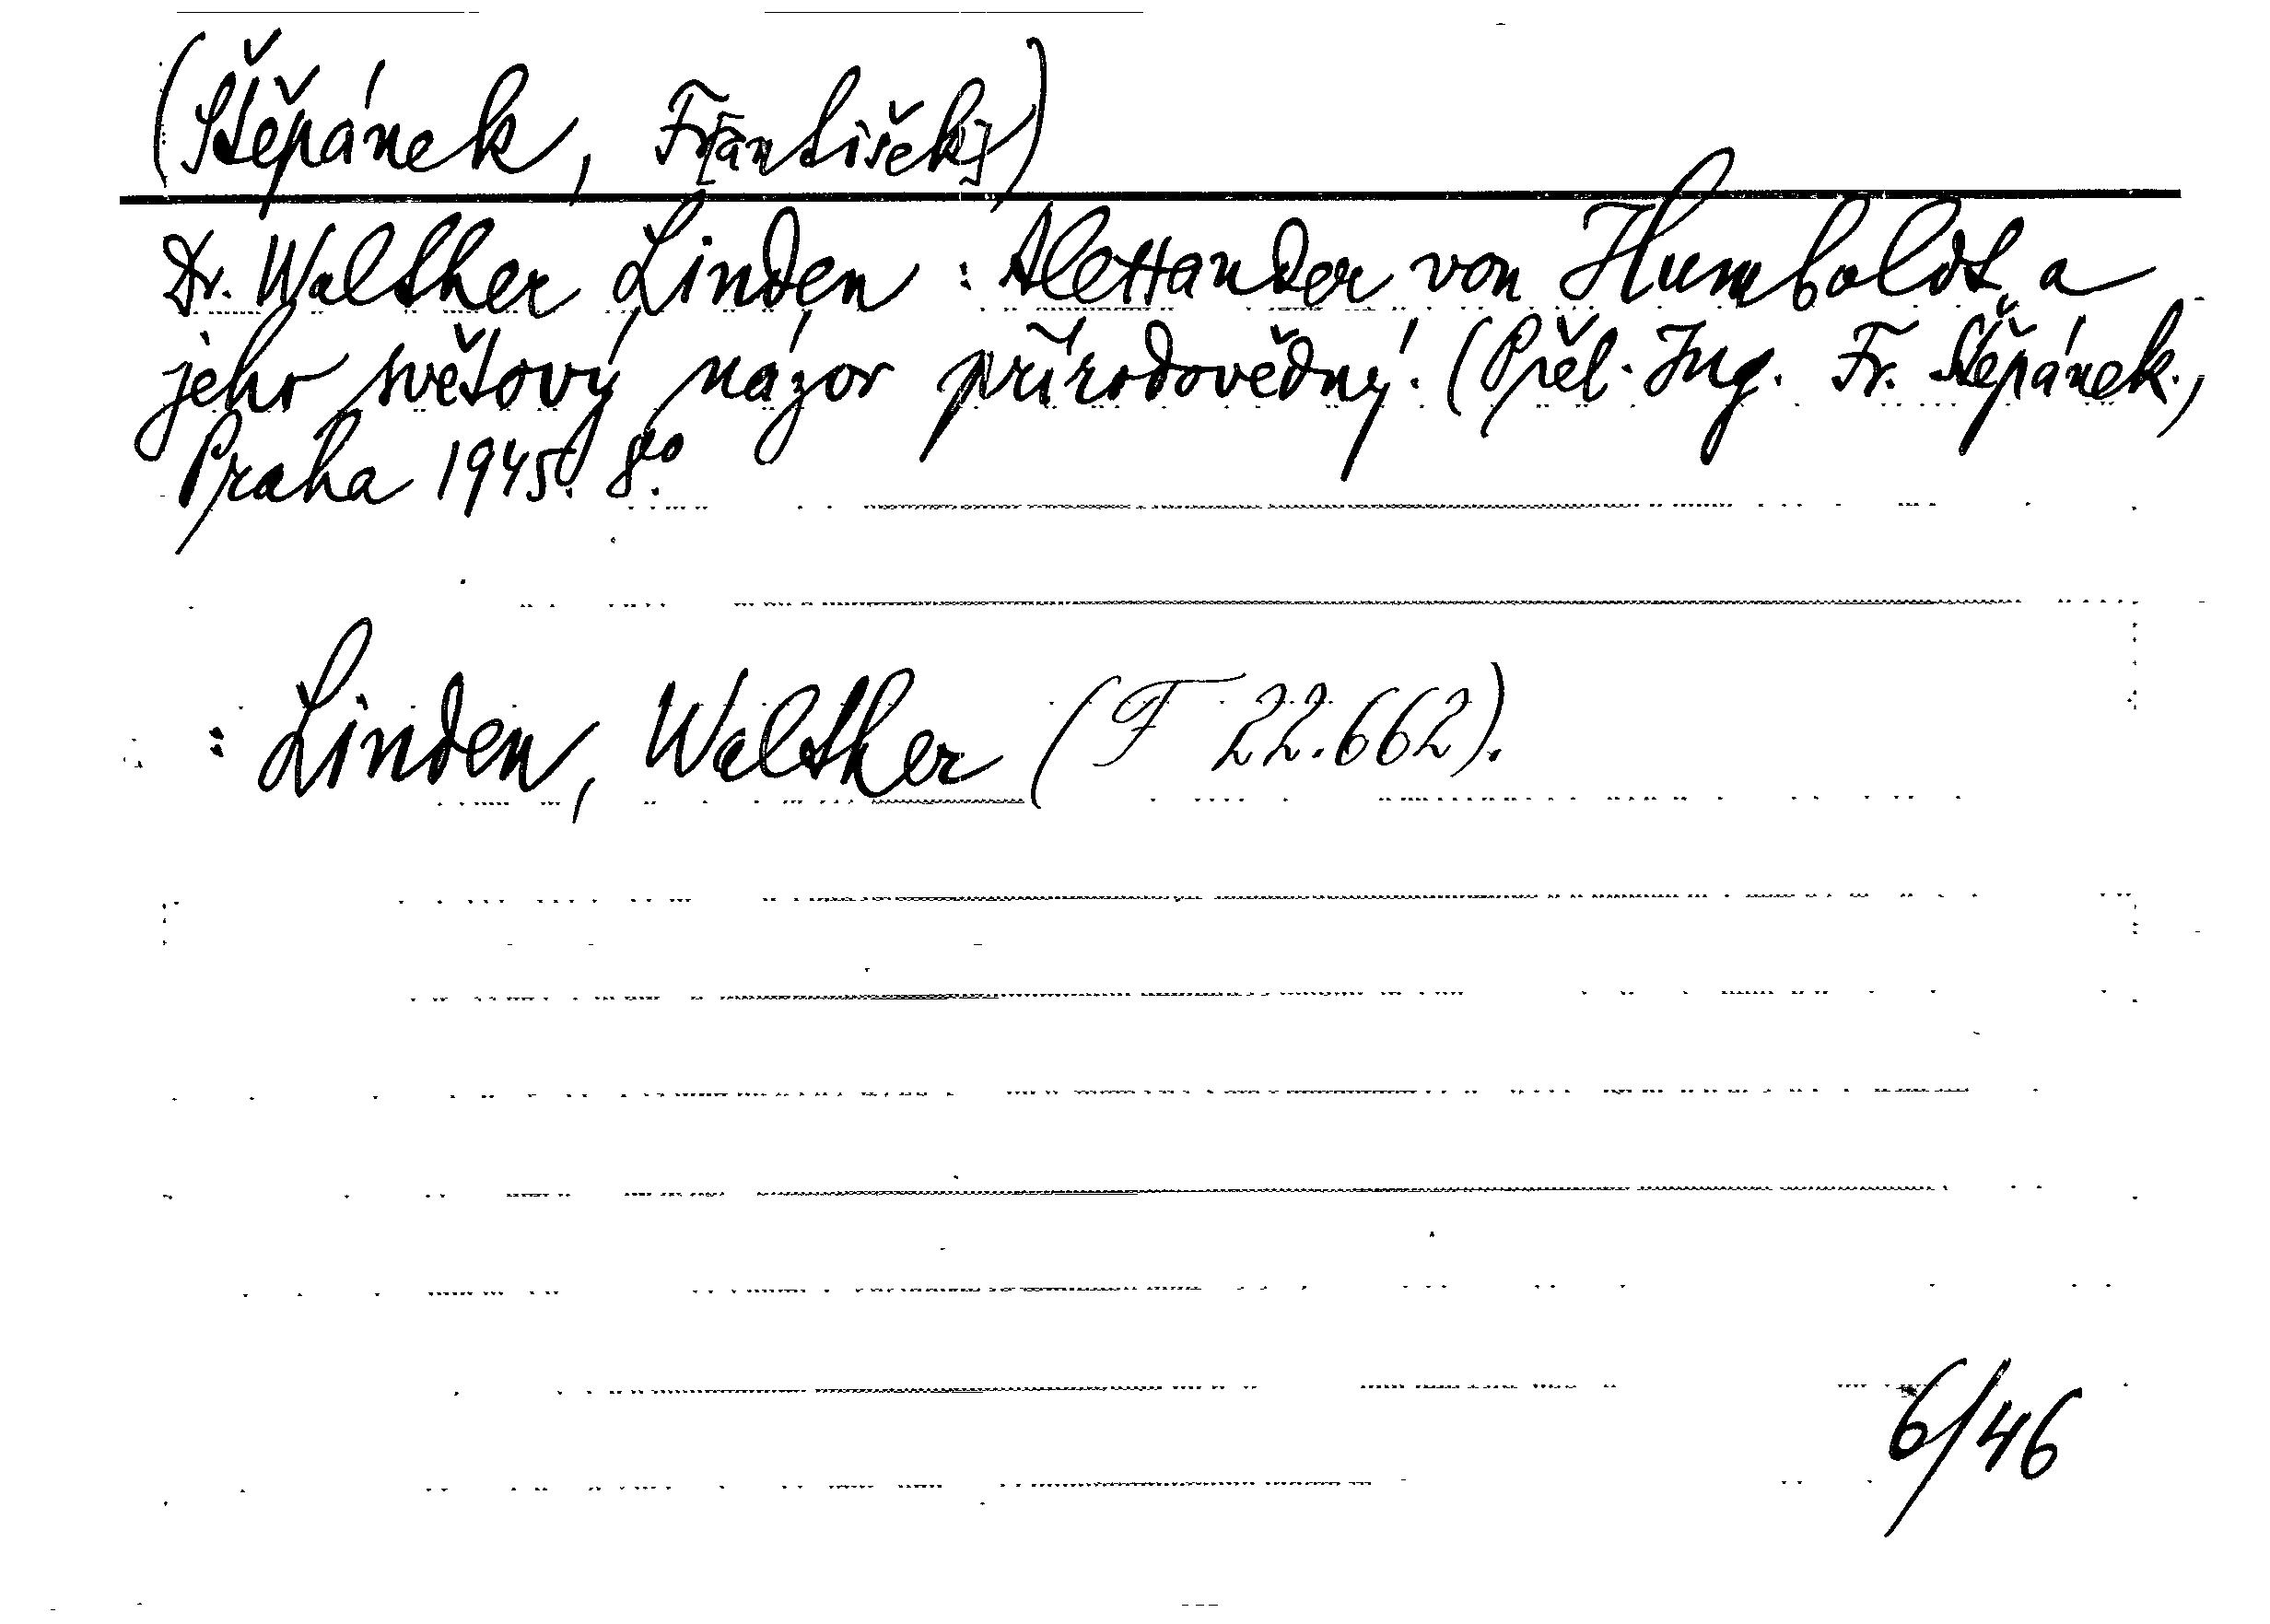 (Štěpánek, Fr[antišek])
Dr. Walther Linden : Alexander von Humboldt a
jeho světový názor přírodovědný. (Přel. Ing. Fr. Štěpánek.)
Praha 1945. 8vo.
: Linden, Walther (F 22.662).
6/46